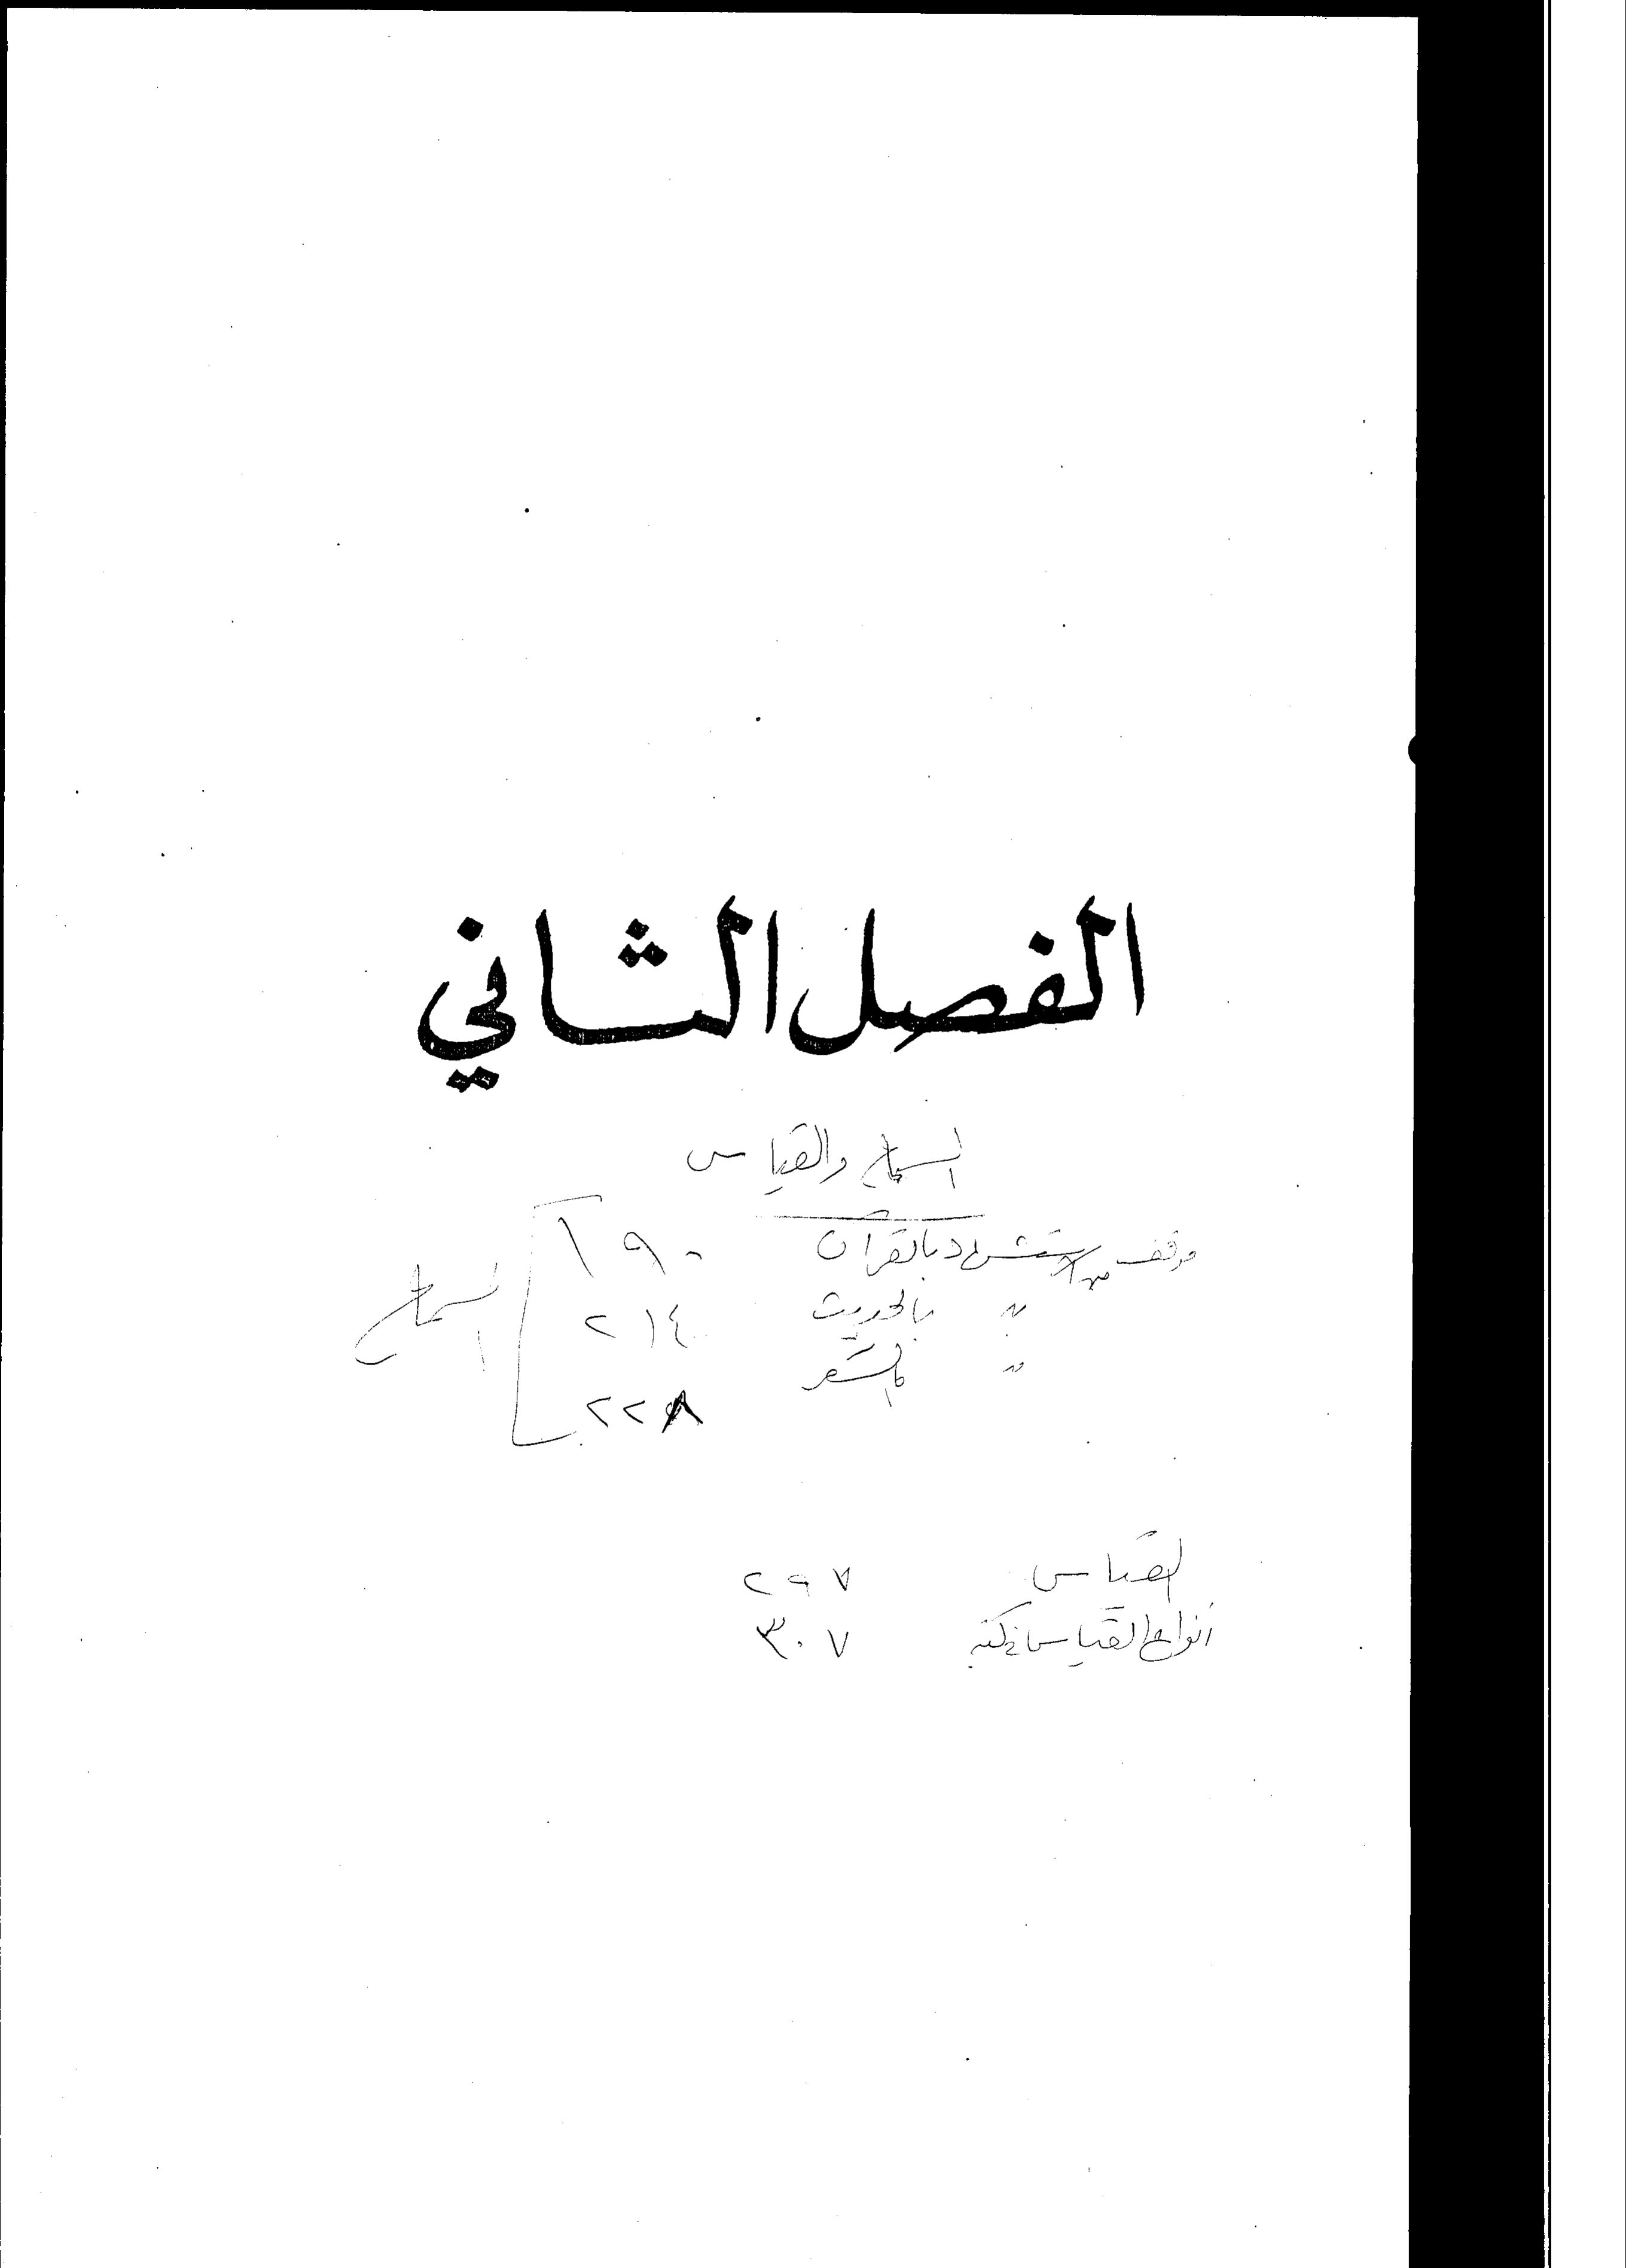 الفصل الثاني
السماع والقياس
موقفه من الاستشهاد بالقرآن ١٩٠
" بالحديث ٢١٤
" بالشعر
٢٢٨
السماع
القياس ٢٩٧
أنواع القياس في كتبه ٣٠٧